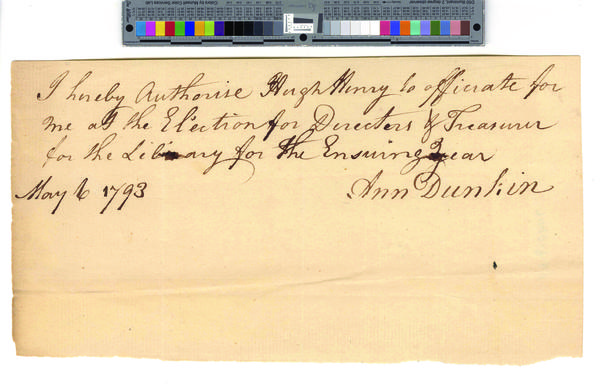 I hereby Authorise Hugh Henry to officiate for
me at the Election for Directers & Treasurer
for the Library for the Ensuing year
May 6 1793
Ann Dunkin